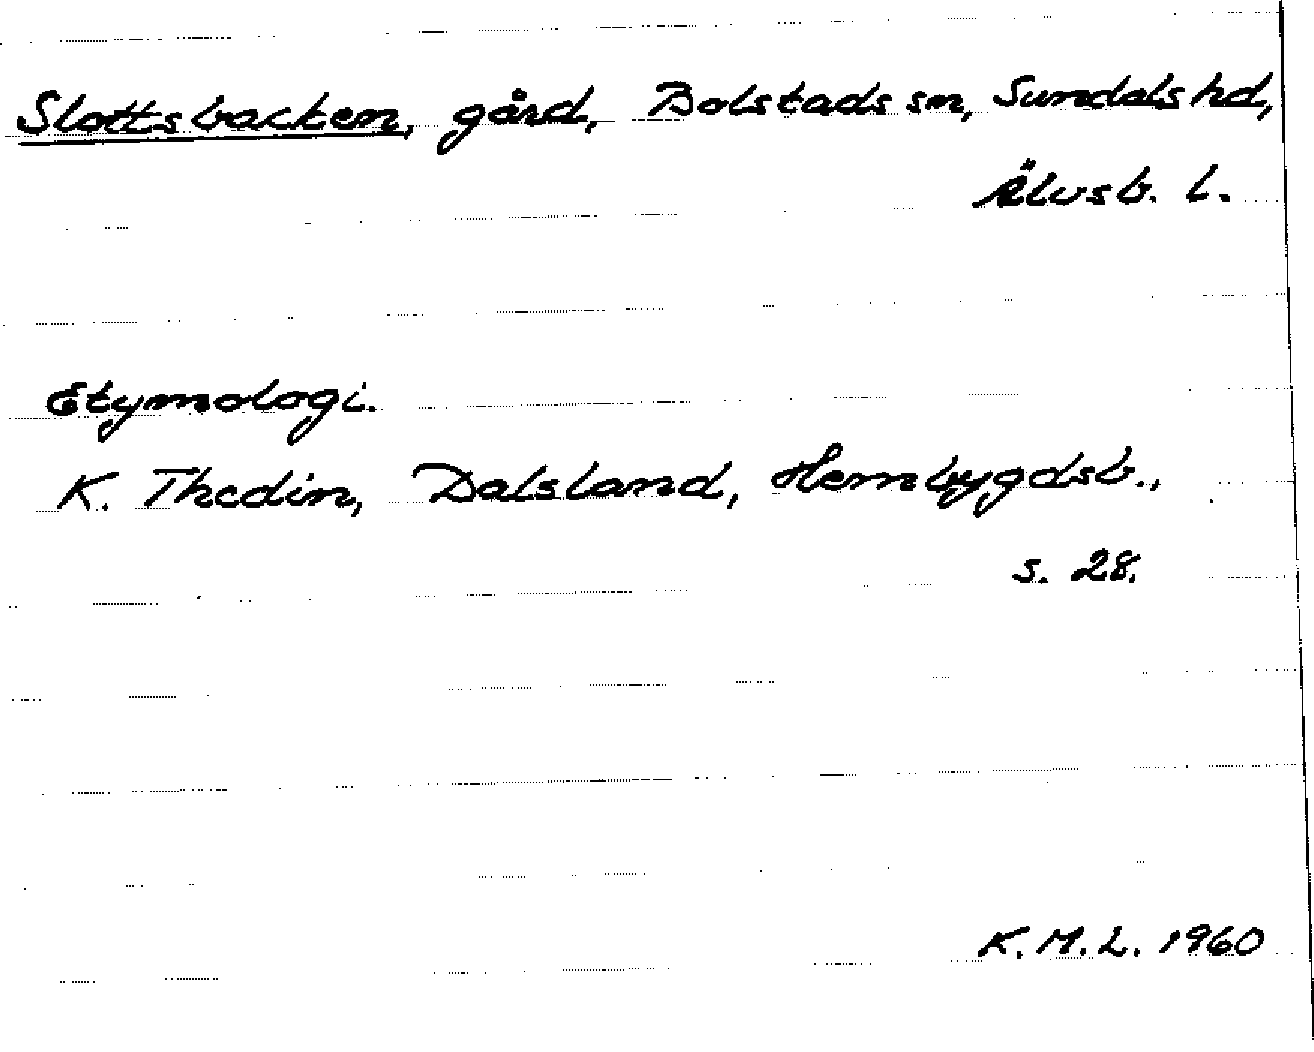 Slottsbacken, gård, Bolstads sn, Sundals hd,
Älvsb. l.
Etymologi.
K. Thedin, Dalsland, Hembygdsb.,
s. 28.
K.M.L. 1960